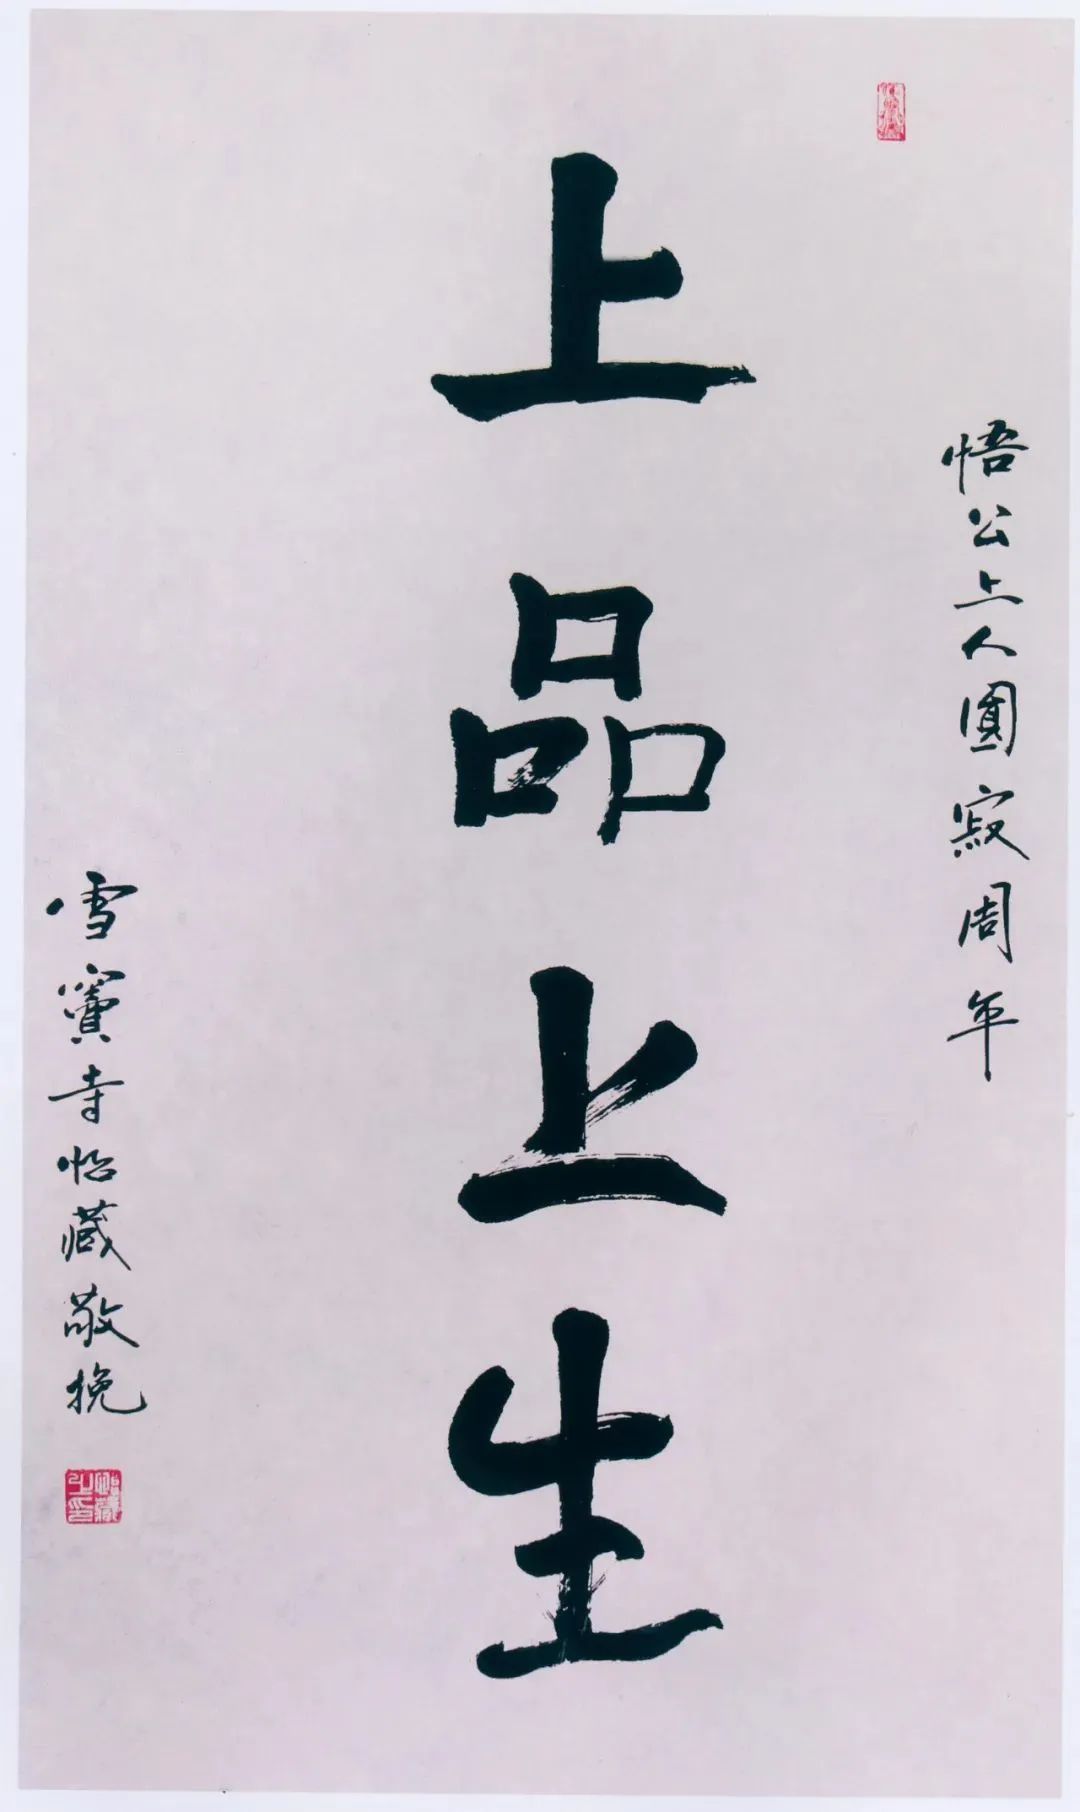 悟公上人圓寂周年
上品上生
雪竇寺怡藏敬挽
怡藏之印